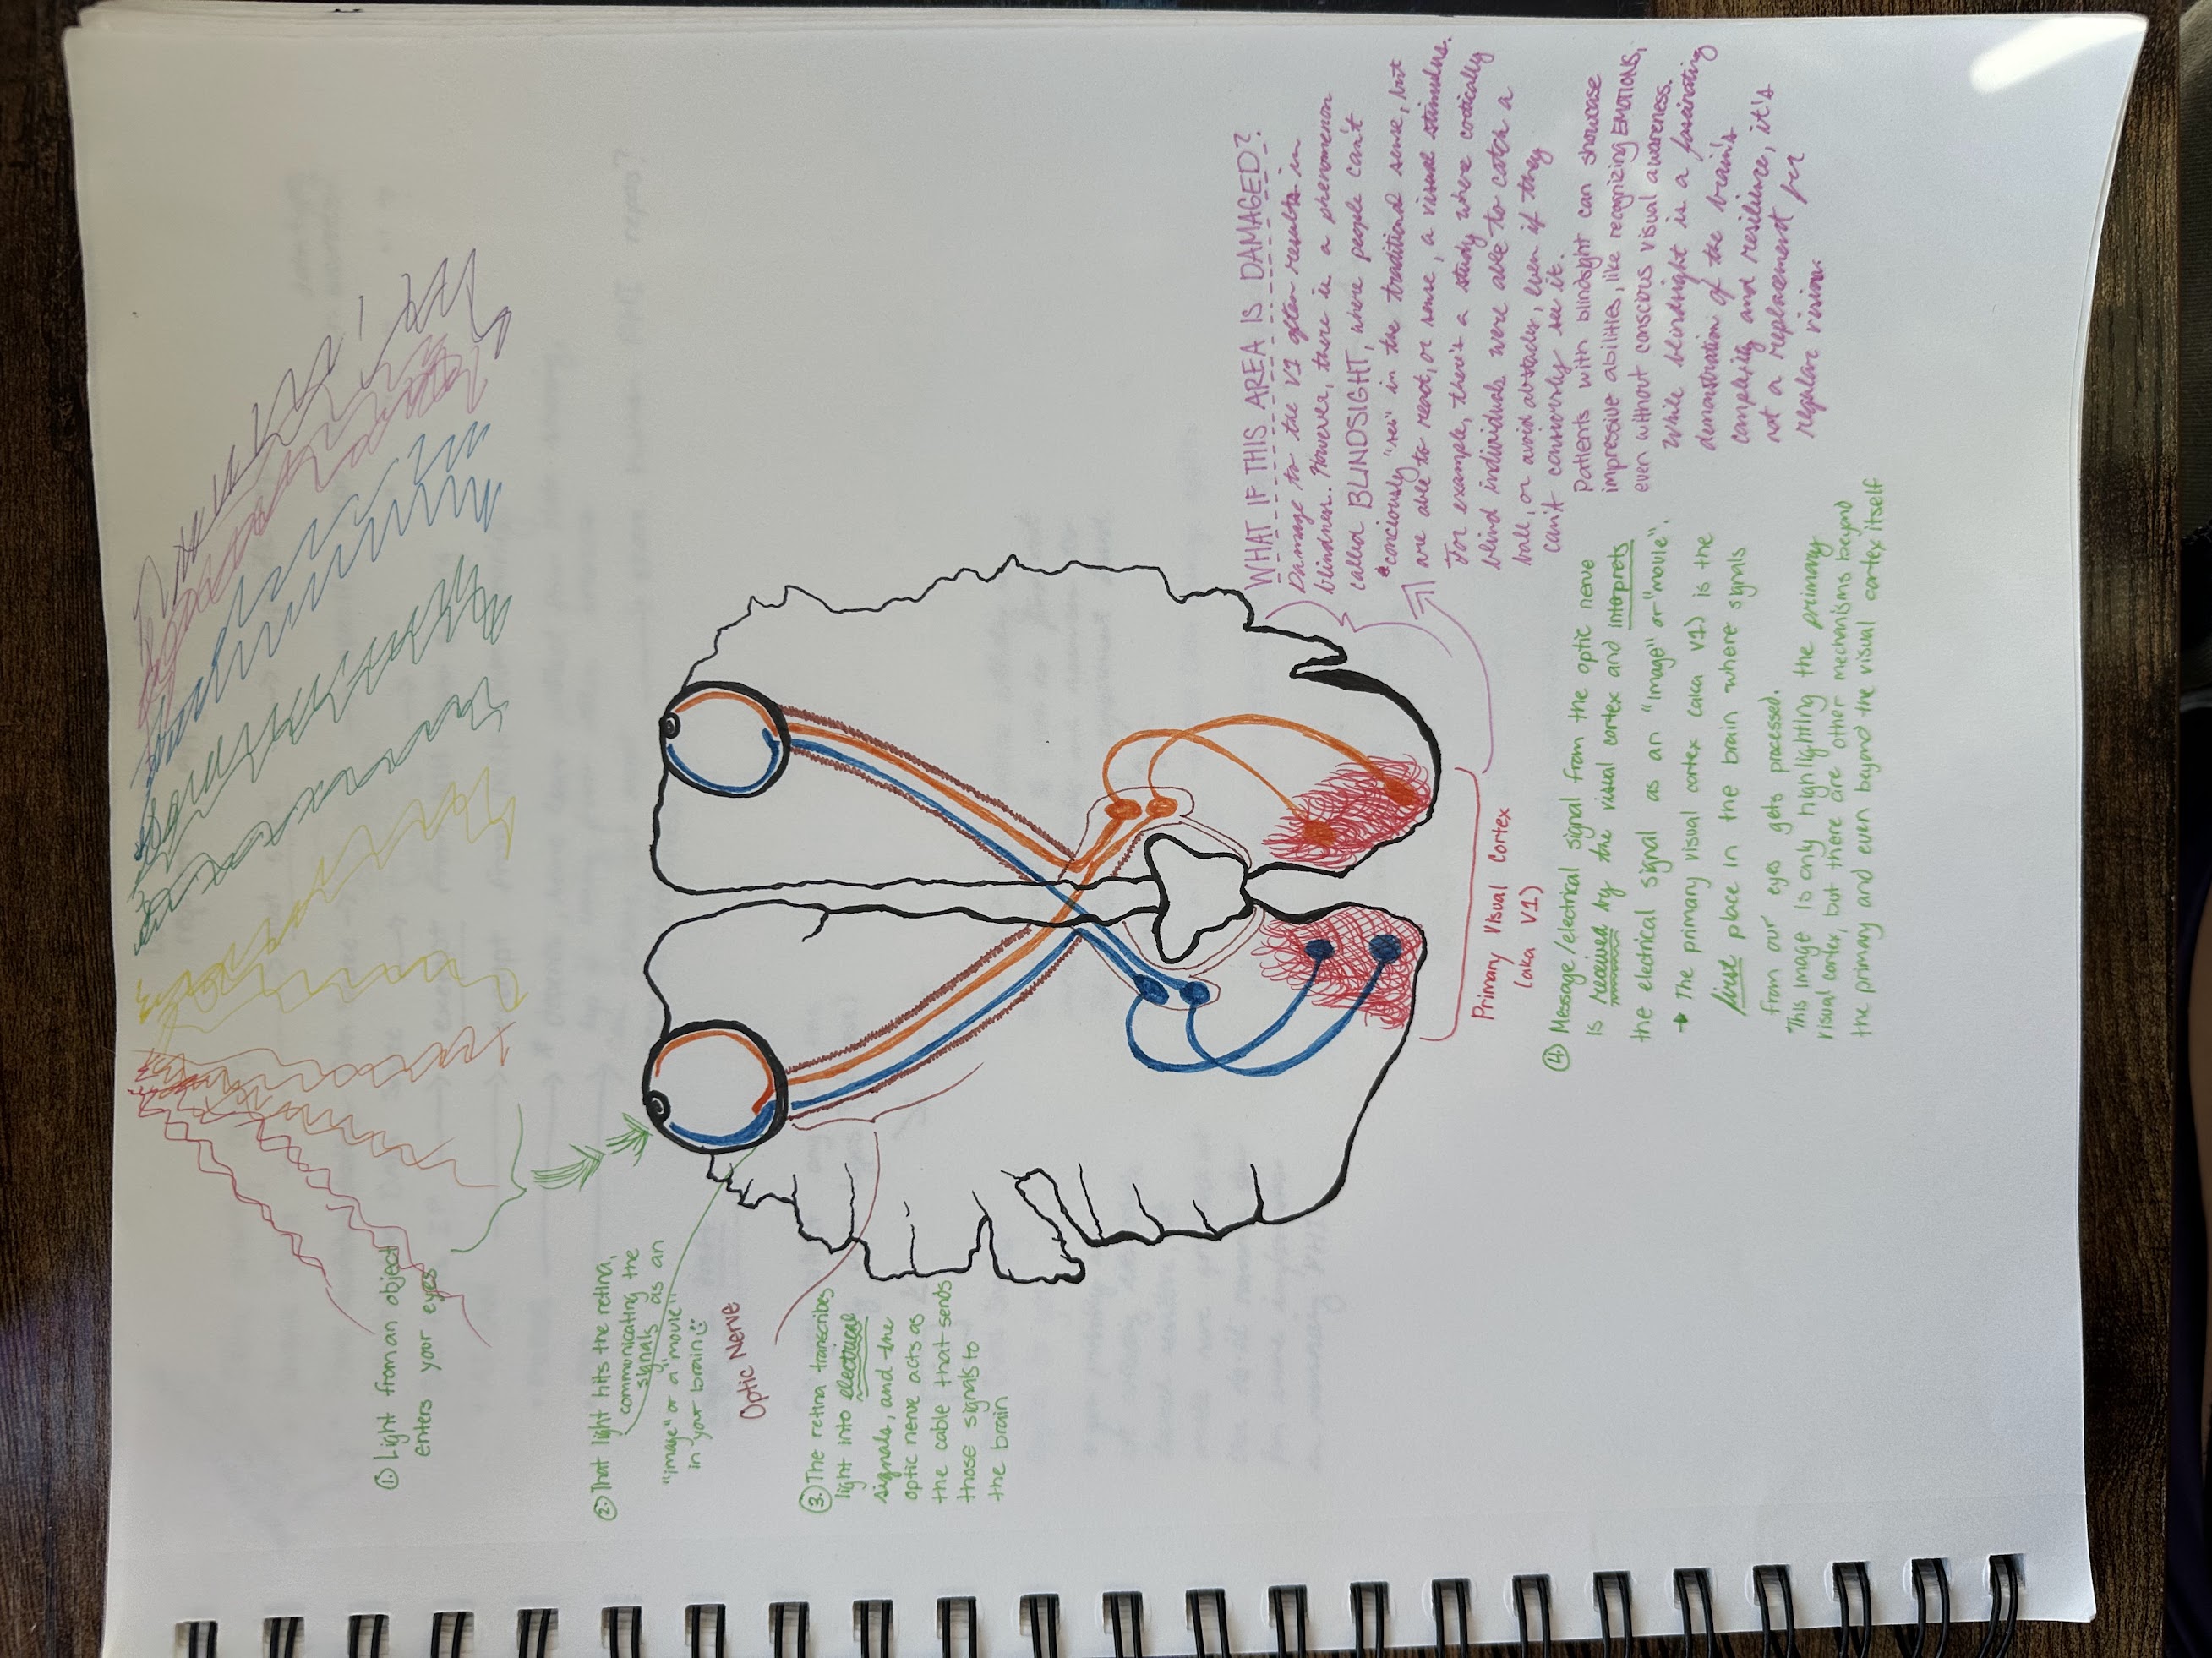 ① Light from an object
enters your eyes
② That light hits the retina,
communicating the
signals as an
"image" or a "movie"
in your brain
Optic Nerve
③ The retina transcribes
light into electrical
signals, and the
optic nerve acts as
the cable that sends
those signals to
the brain
Primary Visual Cortex
(aka V1)
④ Message/electrical signal from the optic nerve
is received by the visual cortex and interprets
the electrical signal as an "image" or "movie".
→ The primary visual cortex (aka V1) is the
first place in the brain where signals
from our eyes gets processed.
*This image is only highlighting the primary
visual cortex, but there are other mechanisms beyond
the primary and even beyond the visual cortex itself
WHAT IF THIS AREA IS DAMAGED?
Damage to the V1 often results in
blindness. However, there is a phenomenon
called BLINDSIGHT, where people can't
conciously "see" in the traditional sense, but
are able to react, or sense, a visual stimulus.
For example, there's a study where cortically
blind individuals were able to catch a
ball, or avoid obstacles, even if they
can't consciously see it.
Patients with blindsight can showcase
impressive abilities, like recognizing EMOTIONS,
even without conscious visual awareness.
While blindsight is a fascinating
demonstration of the brain's
complexity and resilience, it's
not a replacement for
regular vision.